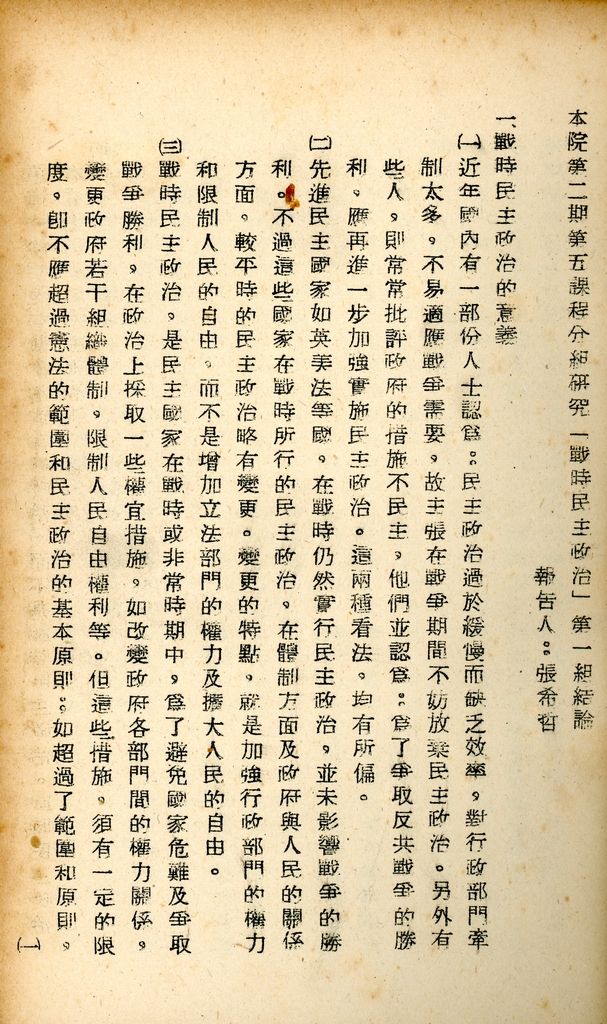 本院第二期第五課程分組研究「戰時民主政治」第一組結論
報告人：張希哲
一、戰時民主政治的意義
㈠近年國內有一部份人士認為：民主政治過於緩慢而缺乏效率，對行政部門牽
制太多，不易適應戰爭需要，故主張在戰爭期間不妨放棄民主政治。另外有
些人，則常常批評政府的措施不民主，他們並認為：為了爭取反共戰爭的勝
利，應再進一步加強實施民主政治。這兩種看法，均有所偏。
㈡先進民主國家如英美法等國，在戰時仍然實行民主政治，並未影響戰爭的勝
利。不過這些國家在戰時所行的民主政治，在體制方面及政府與人民的關係
方面，較平時的民主政治略有變更。變更的特點，就是加強行政部門的權力
和限制人民的自由，而不是增加立法部門的權力及擴大人民的自由。
㈢戰時民主政治，是民主國家在戰時或非常時期中，為了避免國家危難及爭取
戰爭勝利，在政治上採取一些權宜措施，如改變政府各部門間的權力關係，
變更政府若干組織體制，限制人民自由權利等。但這些措施，須有一定的限
度，即不應超過憲法的範圍和民主政治的基本原則：如超過了範圍和原則，
(一)